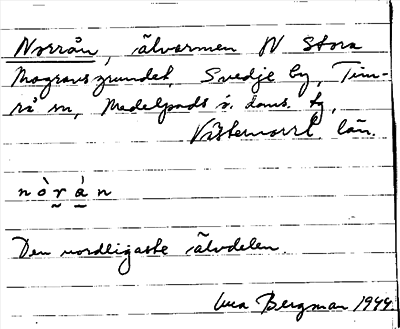 Norrån, älvarmen N Stora
grundet, Svedje by, Tim-
rå sn, Medelpads v. doms. tg,
Västernorrl. län.
n ò r á n
Den nordligaste älvdelen.
Bergman 1944